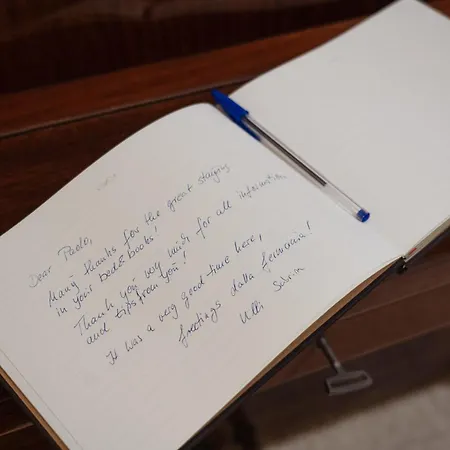 Dear Paolo,
Many thanks for the great staying
in your bed&books!
Thank you very much for all information
and tips from you!
It was a very good time here,
greetings dalla
Ulli